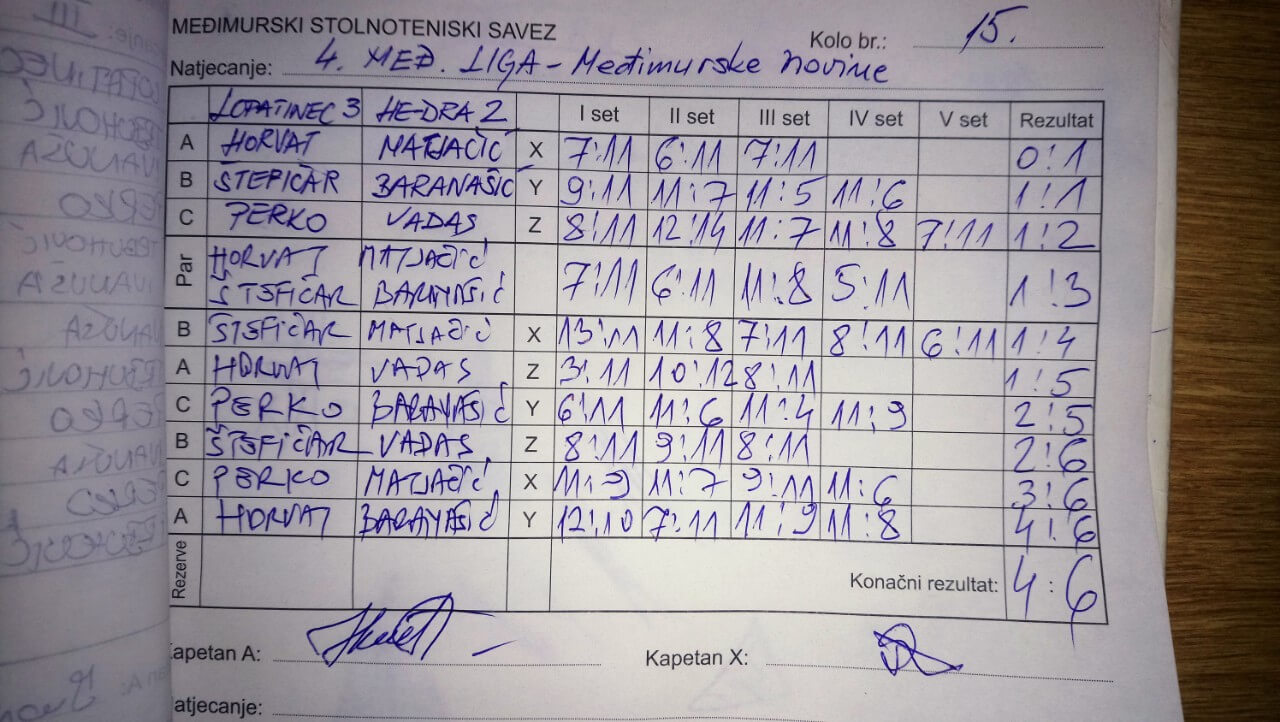 MEĐIMURSKI STOLNOTENISKI SAVEZ
Kolo br.: 15.
Natjecanje: 4. MEĐ. LIGA - Međimurske novine
LOPATINEC 3 HE-DRA 2 I set II set III set IV set V set Rezultat
A HORVAT MATJAČIĆ X 7:11 6:11 7:11 0:1
B ŠTEFIČAR BARANAŠIĆ Y 9:11 11:7 11:5 11:6 1:1
C PERKO VADAS Z 8:11 12:14 11:7 11:8 7:11 1:2
Par HORVAT MATJAČIĆ
ŠTEFIČAR BARANAŠIĆ 7:11 6:11 11:8 5:11 1:3
B ŠTEFIČAR MATJAČIĆ X 13:11 11:8 7:11 8:11 6:11 1:4
A HORVAT VADAS Z 3:11 10:12 8:11 1:5
C PERKO BARANAŠIĆ Y 6:11 11:6 11:4 11:9 2:5
B ŠTEFIČAR VADAS Z 8:11 9:11 8:11 2:6
C PERKO MATJAČIĆ X 11:9 11:7 9:11 11:6 3:6
A HORVAT BARANAŠIĆ Y 12:10 7:11 11:9 11:8 4:6
Rezerve Konačni rezultat: 4:6
apetan A: Kapetan X:
atjecanje: